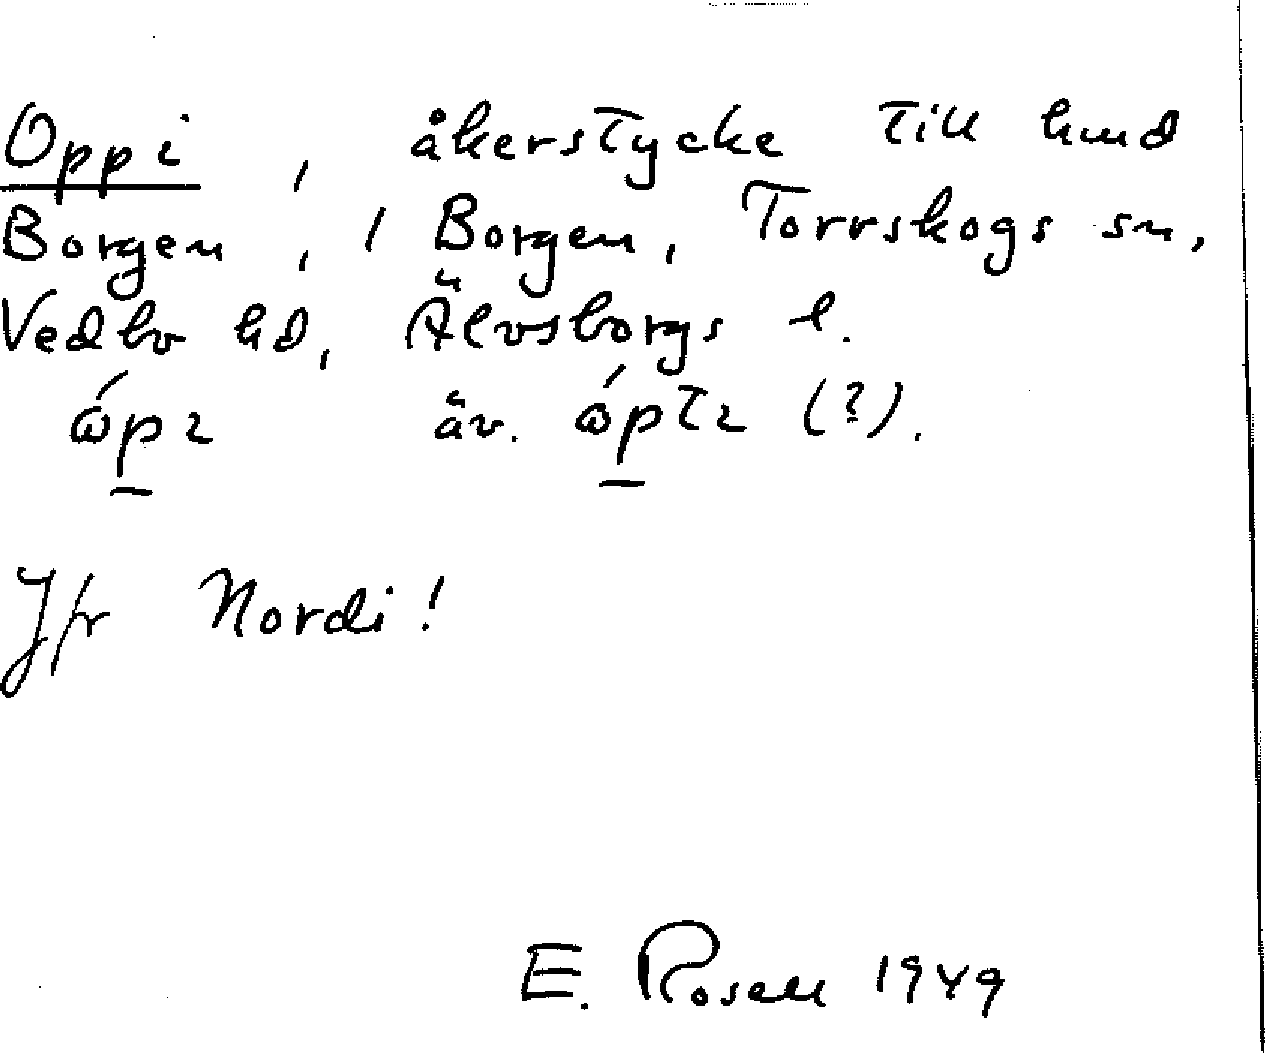 Oppi, åkerstycke till hmd
Borgen, 1 Borgen, Torrskogs sn,
Vedbo hd, Älvsborgs l.
äv. (?).
Jfr Nordi!
E. Rosell 1949